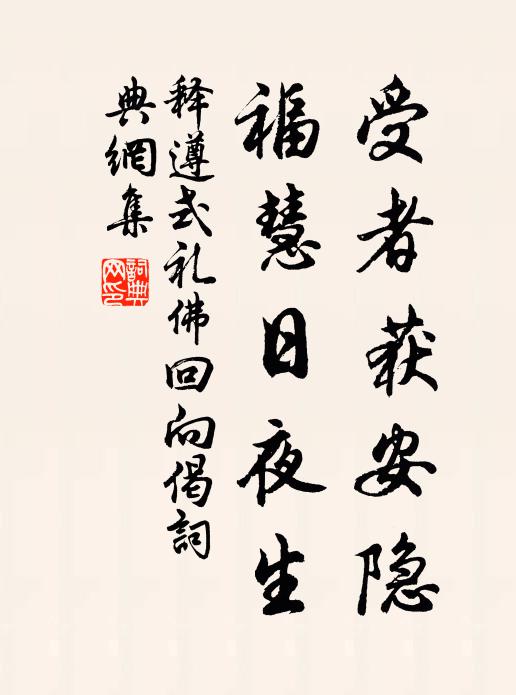 受者获安隐
福慧日夜生
释遵式礼佛回向偈詞
典網集
詞典
网印